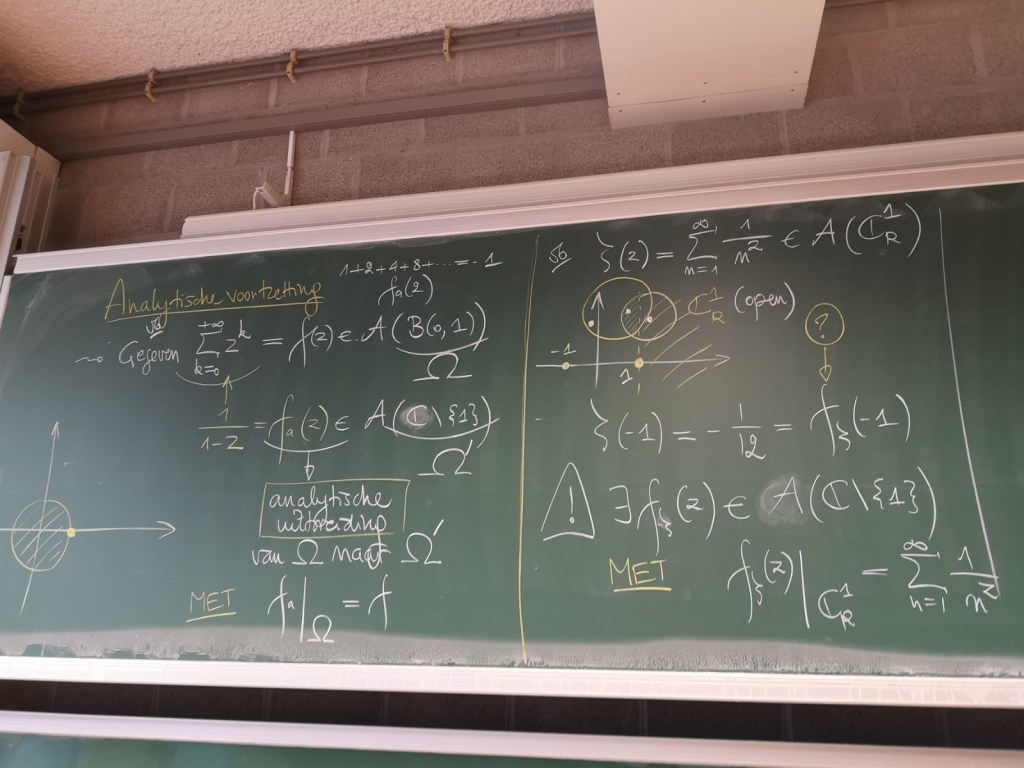 Analytische voortzetting
1+2+4+8+ ... = -1
fₐ(2)
Gegeven ∑_{k=0}^{+∞} z^k = f(z) ∈ A(B(0,1))
Ω
1/(1-z) = fₐ(z) ∈ A(ℂ\{1})
Ω'
analytische
uitbreiding
van Ω naar Ω'
MET fₐ|_Ω = f
ζ(z) = ∑_{n=1}^{∞} 1/n^z ∈ A(ℂ_R^1)
ℂ_R^1 (open)
?
-1
1
ζ(-1) = -1/12 = f_ξ(-1)
! ∃ f_ξ(z) ∈ A(ℂ\{1})
MET f_ξ(z)|_{ℂ_R^1} = ∑_{n=1}^{∞} 1/n^z